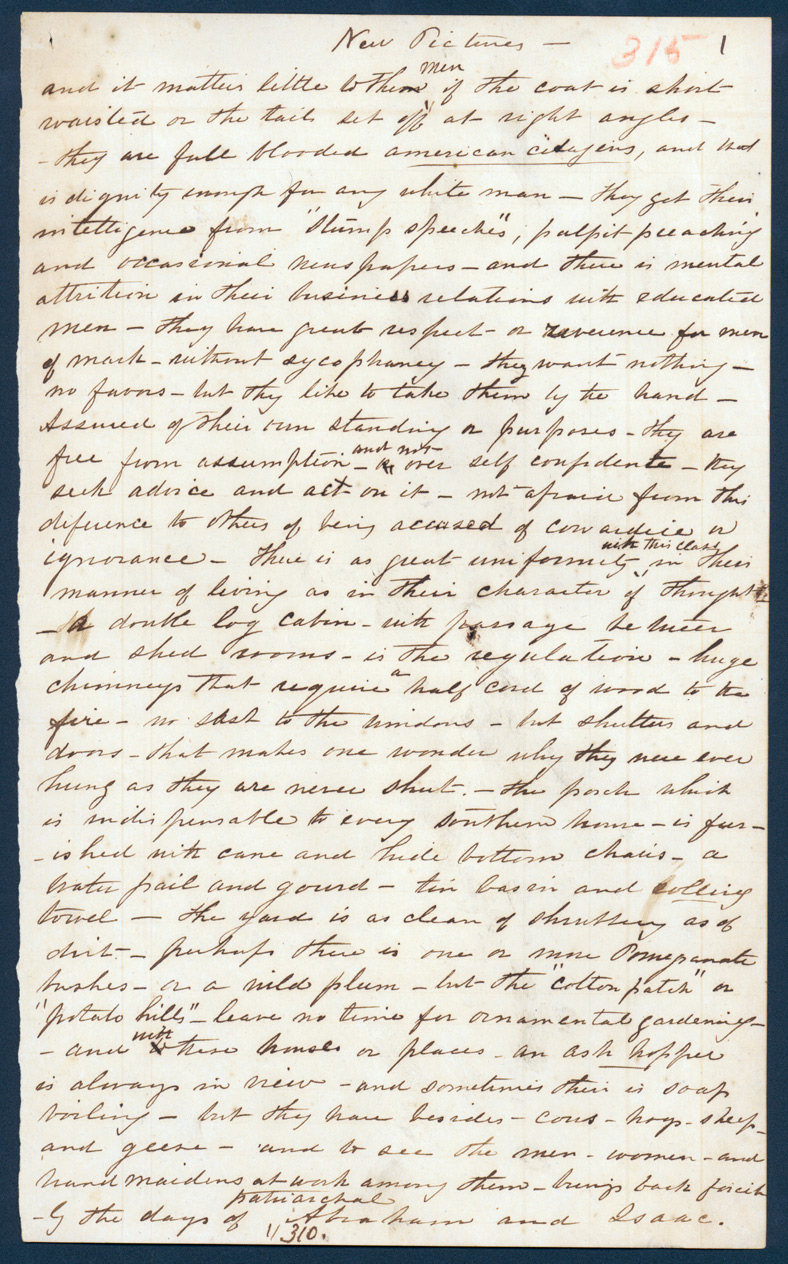 New Pictures —
315 1
and it matters little to them men if the coat is short
waisted or the tails set off at right angles —
- they are full blooded american citazens, and that
is dignity enough for any white man — they get their
intelligence from "Stump speeches", pulpit preaching
and occasional newspapers — and there is mental
attrition in their business relations with educated
men — they have great respect - or reverence for men
of mark - without sycophancy — they want nothing —
no favors — but they like to take them by the hand —
Assured of their own standing or purposes - they are
free from assumption — and not over self confidente — they
seek advice and act on it — not afraid from this
diference to others of being accused of cowardice or
ignorance — there is as great uniformity with this class in their
manner of living as in their character of thought
— a double log cabin - with passage between
and shed rooms - is the regulation - huge
chimneys that require a half cord of wood to the
fire — no sash to the windows — but shutters and
doors — that makes one wonder why they were ever
hung as they are never shut. — the porch which
is indispensable to every southern house — is fur-
-ished with cane and hide bottom chairs — a
water pail and gourd — tin basin and rolling
towel — the yard is as clean of shrubbery as of
dirt — perhaps there is one or more Pomegranate
bushes — or a wild plum — but the "cotton patch" or
"potato hills" — leave no time for ornamental gardening —
- and with these houses or places - an ash hopper
is always in view - and sometimes their is soap
boiling — but they have besides - cows - hogs - sheep -
and geese — and to see the men - women - and
hand maidens at work among them - brings back forcib
-ly the days of patriarchal Abraham and Isaac.
310.